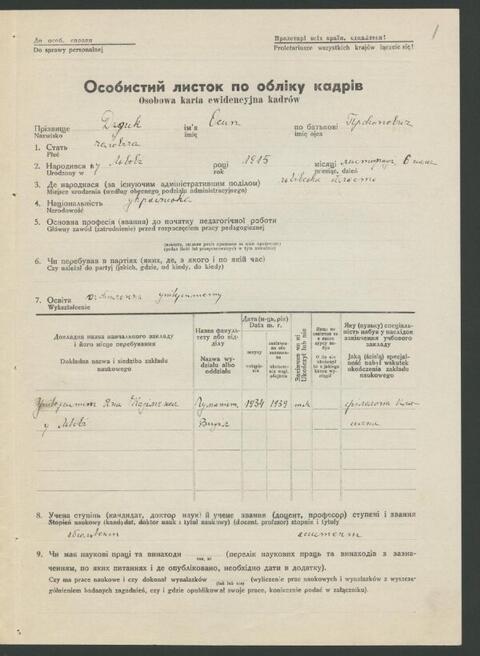 До особ. справи
Do sprawy personalnej
Пролетарі всіх країн, єднайтеся!
Proletariusze wszystkich krajów łączcie się!
1
Особистий листок по обліку кадрів
Osobowa karta ewidencyjna kadrów
Прізвище Дздик ім'я Осип по батькові Прокопович
Nazwisko imię imię ojca
1. Стать чоловіча
Płeć
2. Народився в у Львові році 1915 місяці листопад 6 дня
Urodzony w roku miesiąc, dzień
3. Де народився (за існуючим адміністративним поділом) львівська область
Miejsce urodzenia (według obecnego podziału administracyjnego)
4. Національність українська
Narodowość
5. Основна професія (звання) до початку педагогічної роботи
Główny zawód (zatrudnienie) przed rozpoczęciem pracy pedagogicznej
6. Чи перебував в партіях (яких, де, з якого і по якій час)
Czy należał do partyj (jakich, gdzie, od kiedy, do kiedy)
7. Освіта університету
Wykształcenie
Докладна назва навчального закладу і його місце перебування
Dokładna nazwa i siedziba zakładu naukowego
Назва факультету або відділу
Nazwa wydziału albo oddziału
Дата (м-ць, рік)
Data m. r.
вступу
Ukończył lub nie
Яку (вузьку) спеціальність набув у наслідок закінчення учбового закладу
Jaką (ścisłą) specjalność nabył wskutek ukończenia zakładu naukowego
Університет Яна Казимежа Гуманіт. 1934 1939 так філологія кла-
у Львові Видл сична
8. Учена ступінь (кандидат, доктор наук) й учене звання (доцент, професор) ступені і звання
Stopień naukowy (kandydat, doktor nauk i tytuł naukowy) (docent, profesor) stopnie i tytuły
абсольвент асистент
9. Чи має наукові праці та винаходи (перелік наукових праць та винаходів з зазначенням, по яких питаннях і де опубліковано, необхідно дати в додатку).
так, ні
Czy ma prace naukowe i czy dokonał wynalazków (wyliczenie prac naukowych i wynalazków z wyszczególnieniem badanych zagadnień, czy i gdzie opublikował swoje prace, koniecznie podać w załączniku).
(tak lub nie)